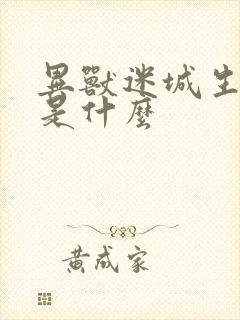 異獸迷城生
是什麼
黃成家